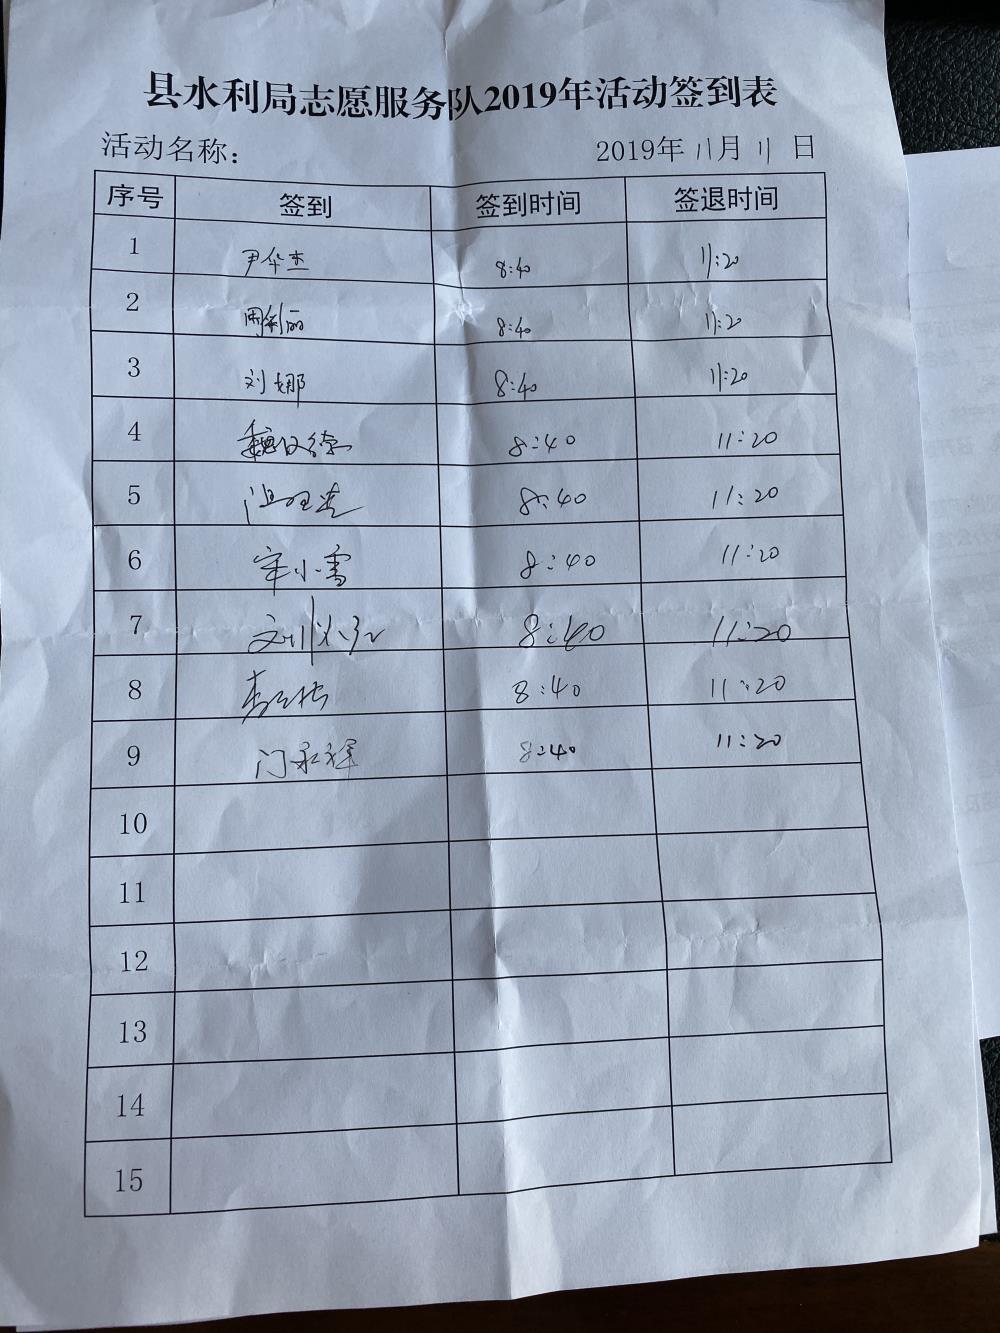 县水利局志愿服务队2019年活动签到表
活动名称： 2019年11月11日
序号 签到 签到时间 签退时间
1 尹华杰 8:40 11:20
2 周利丽 8:40 11:20
3 刘娜 8:40 11:20
4 8:40 11:20
5 8:40 11:20
6 宋小雪 8:40 11:20
7 8:40 11:20
8 8:40 11:20
9 门永祥 8:40 11:20
10
11
12
13
14
15